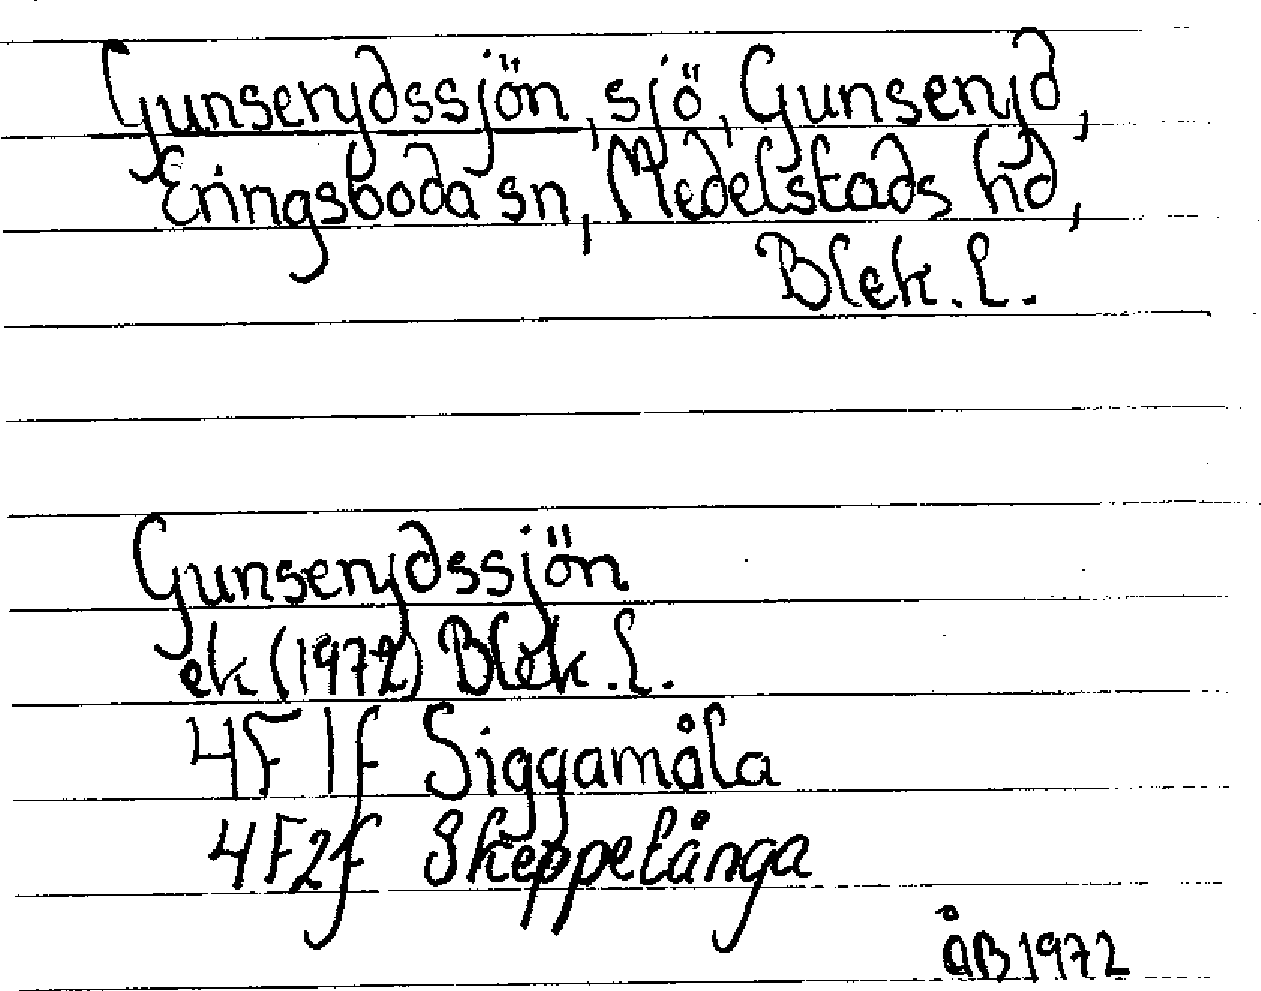 Gunserydssjön, sjö, Gunseryd,
Eringsboda sn, Medelstads hd,
Blek. l.
Gunserydssjön
ek (1972) Blek. l.
4F 1f Siggamåla
4F2f Skeppelånga
ÅB 1972